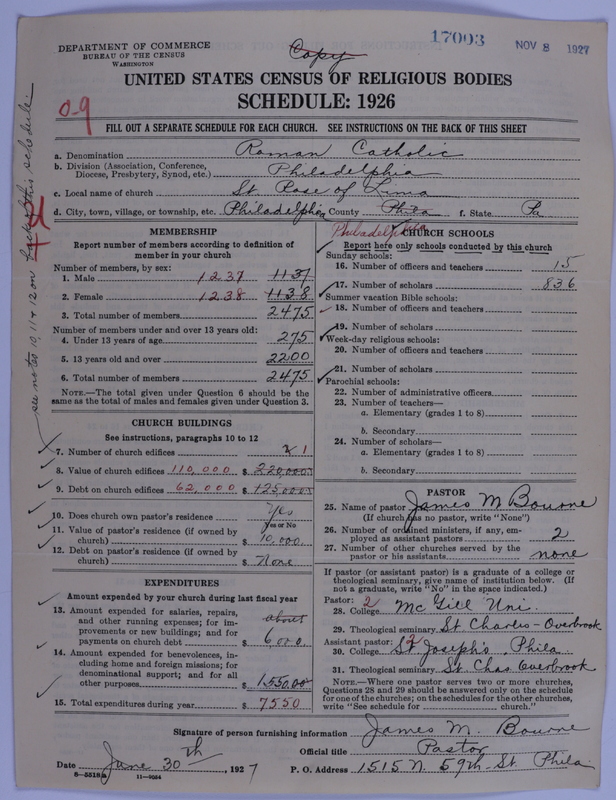 17003
NOV 8 1927
Copy
DEPARTMENT OF COMMERCE
BUREAU OF THE CENSUS
WASHINGTON
UNITED STATES CENSUS OF RELIGIOUS BODIES
SCHEDULE: 1926
0-9
FILL OUT A SEPARATE SCHEDULE FOR EACH CHURCH. SEE INSTRUCTIONS ON THE BACK OF THIS SHEET
a. Denomination Roman Catholic
b. Division (Association, Conference, Diocese, Presbytery, Synod, etc.) Philadelphia
c. Local name of church St Rose of Lima
d. City, town, village, or township, etc. Philadelphia County Phila f. State Pa
Philadelphia
see notes 10, 11 + 12 on back of this schedule
MEMBERSHIP
Report number of members according to definition of
member in your church
Number of members, by sex:
1. Male 1237 1137
2. Female 1238 1138
3. Total number of members 2475
Number of members under and over 13 years old:
4. Under 13 years of age 275
5. 13 years old and over 2200
6. Total number of members 2475
NOTE.—The total given under Question 6 should be
the same as the total of males and females given under Question 3.
CHURCH BUILDINGS
See instructions, paragraphs 10 to 12
7. Number of church edifices 1
8. Value of church edifices 110,000 $ 220,000
9. Debt on church edifices 62,000 $ 125,000
10. Does church own pastor's residence Yes
Yes or No
11. Value of pastor's residence (if owned by
church) $ 10,000
12. Debt on pastor's residence (if owned by
church) $ None
EXPENDITURES
Amount expended by your church during last fiscal year
13. Amount expended for salaries, repairs,
and other running expenses; for im-
provements or new buildings; and for
payments on church debt $ about 6000.
14. Amount expended for benevolences, in-
cluding home and foreign missions; for
denominational support; and for all
other purposes $ 1550.00
15. Total expenditures during year $ 7550
CHURCH SCHOOLS
Report here only schools conducted by this church
Sunday schools:
16. Number of officers and teachers 15
17. Number of scholars 836
Summer vacation Bible schools:
18. Number of officers and teachers
19. Number of scholars
Week-day religious schools:
20. Number of officers and teachers
21. Number of scholars
Parochial schools:
22. Number of administrative officers
23. Number of teachers—
a. Elementary (grades 1 to 8)
b. Secondary
24. Number of scholars—
a. Elementary (grades 1 to 8)
b. Secondary
PASTOR
25. Name of pastor James M Bourne
(If church has no pastor, write "None")
26. Number of ordained ministers, if any, em-
ployed as assistant pastors 2
27. Number of other churches served by the
pastor or his assistants none
If pastor (or assistant pastor) is a graduate of a college or
theological seminary, give name of institution below. (If
not a graduate, write "No" in the space indicated.)
Pastor: 2
28. College Mc Gill Uni.
29. Theological seminary St Charles - Overbrook
Assistant pastor: 2
30. College St Joseph's, Phila
31. Theological seminary St Chas Overbrook
NOTE.—Where one pastor serves two or more churches,
Questions 28 and 29 should be answered only on the schedule
for one of the churches; on the schedules for the other churches,
write "See schedule for church."
Signature of person furnishing information James M. Bourne
Official title Pastor
Date June 30th, 1927 P. O. Address 1515 N. 59th St Phila.
8—5518a 11—9034